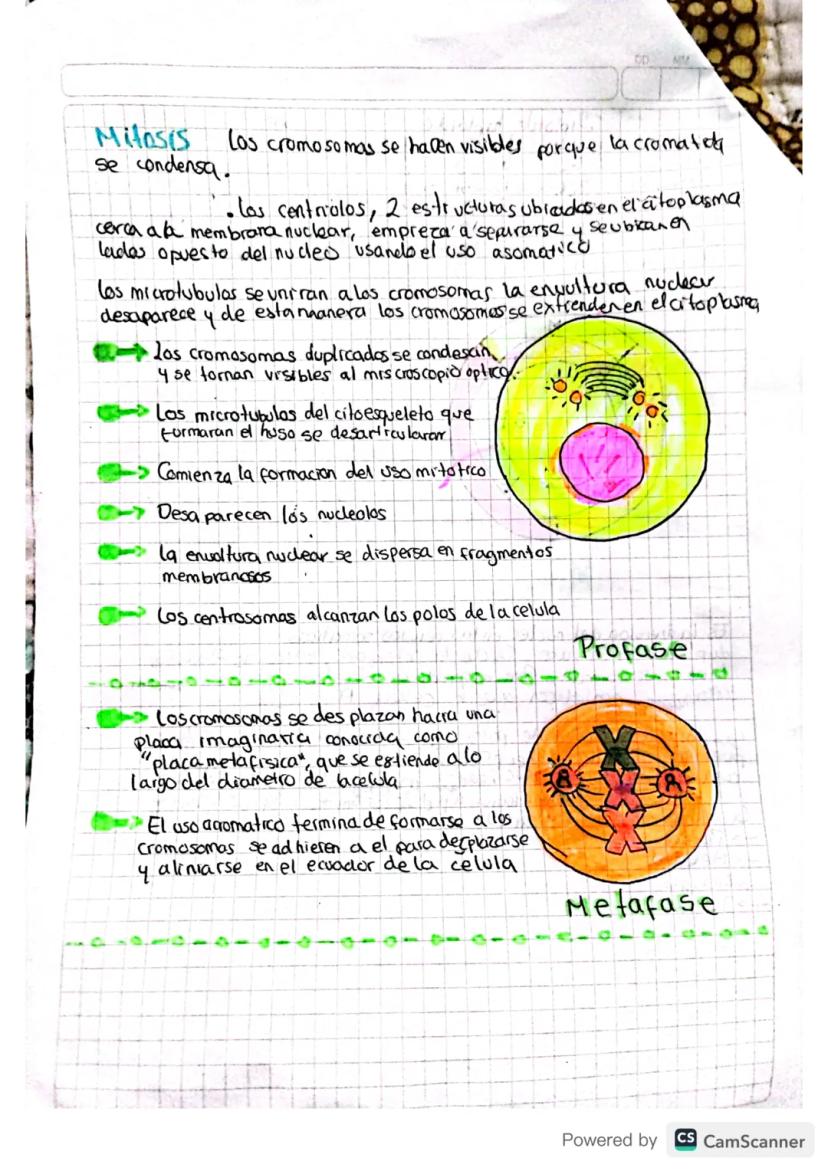 DD MM
Mitosis Los cromosomas se hacen visibles porque la cromatida
se condensa.
.Los centriolos, 2 estructuras ubicadas en el citoplasma
cerca a la membrana nuclear, empreza a separarse y se ubican en
lados opuesto del nucleo usando el uso asomatico
Los microtubulos se uniran a los cromosomas la envultura nuclear
desaparece y de esta manera los cromosomas se extienden en el citoplasma
Los cromosomas duplicados se condesan
y se tornan visibles al miscroscopio optico.
Los microtubulos del citoesqueleto que
formaran el huso se desarticularan
Comienza la formacion del uso mitotico
Desaparecen los nucleolos
la envoltura nuclear se dispersa en fragmentos
membranosos
Los centrosomas alcanzan los polos de la celula
Profase
Los cromosomas se desplazan hacia una
placa imaginaria conocida como
"placa metafisica", que se estiende a lo
largo del diametro de la celula
El uso acromatico termina de formarse a los
cromosomas se adhieren a el para desplazarse
y aliniarse en el ecuador de la celula
Metafase
Powered by CS CamScanner